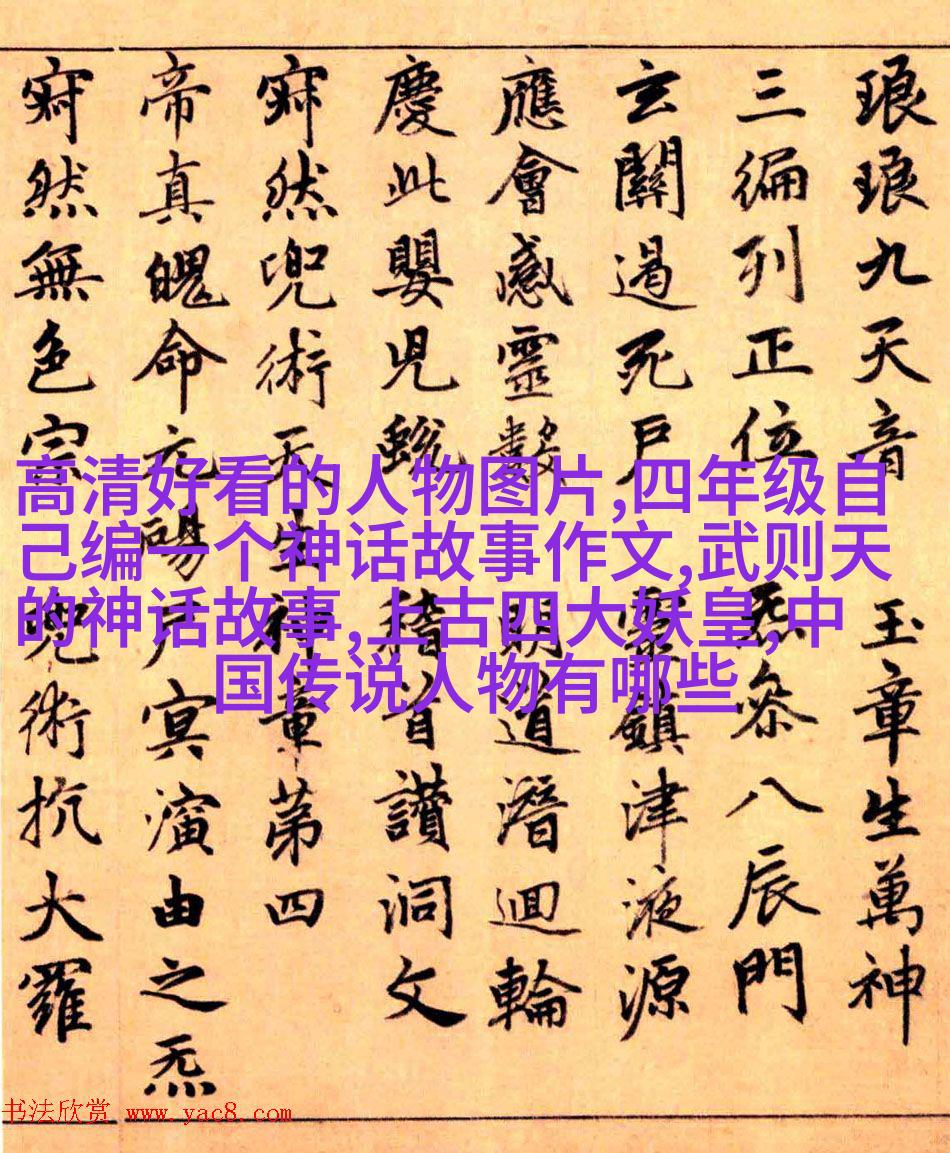 琅琅九天音 玉章生萬神
三編列正位 炁叅八辰門
玄關遏死戶 鎮津液源
應會感靈數 明道潛迴輪
慶此嬰兒蛻 稽首讚洞文
寂然兜術天生神章第四
帝真魄命元陽戶冥演由之炁
寂然無色宗兜術抗大羅
高清好看的人物图片,四年级自
己编一个神话故事作文,武则天
的神话故事,上古四大妖皇,中
国传说人物有哪些
书法欣赏 www.yac8.com